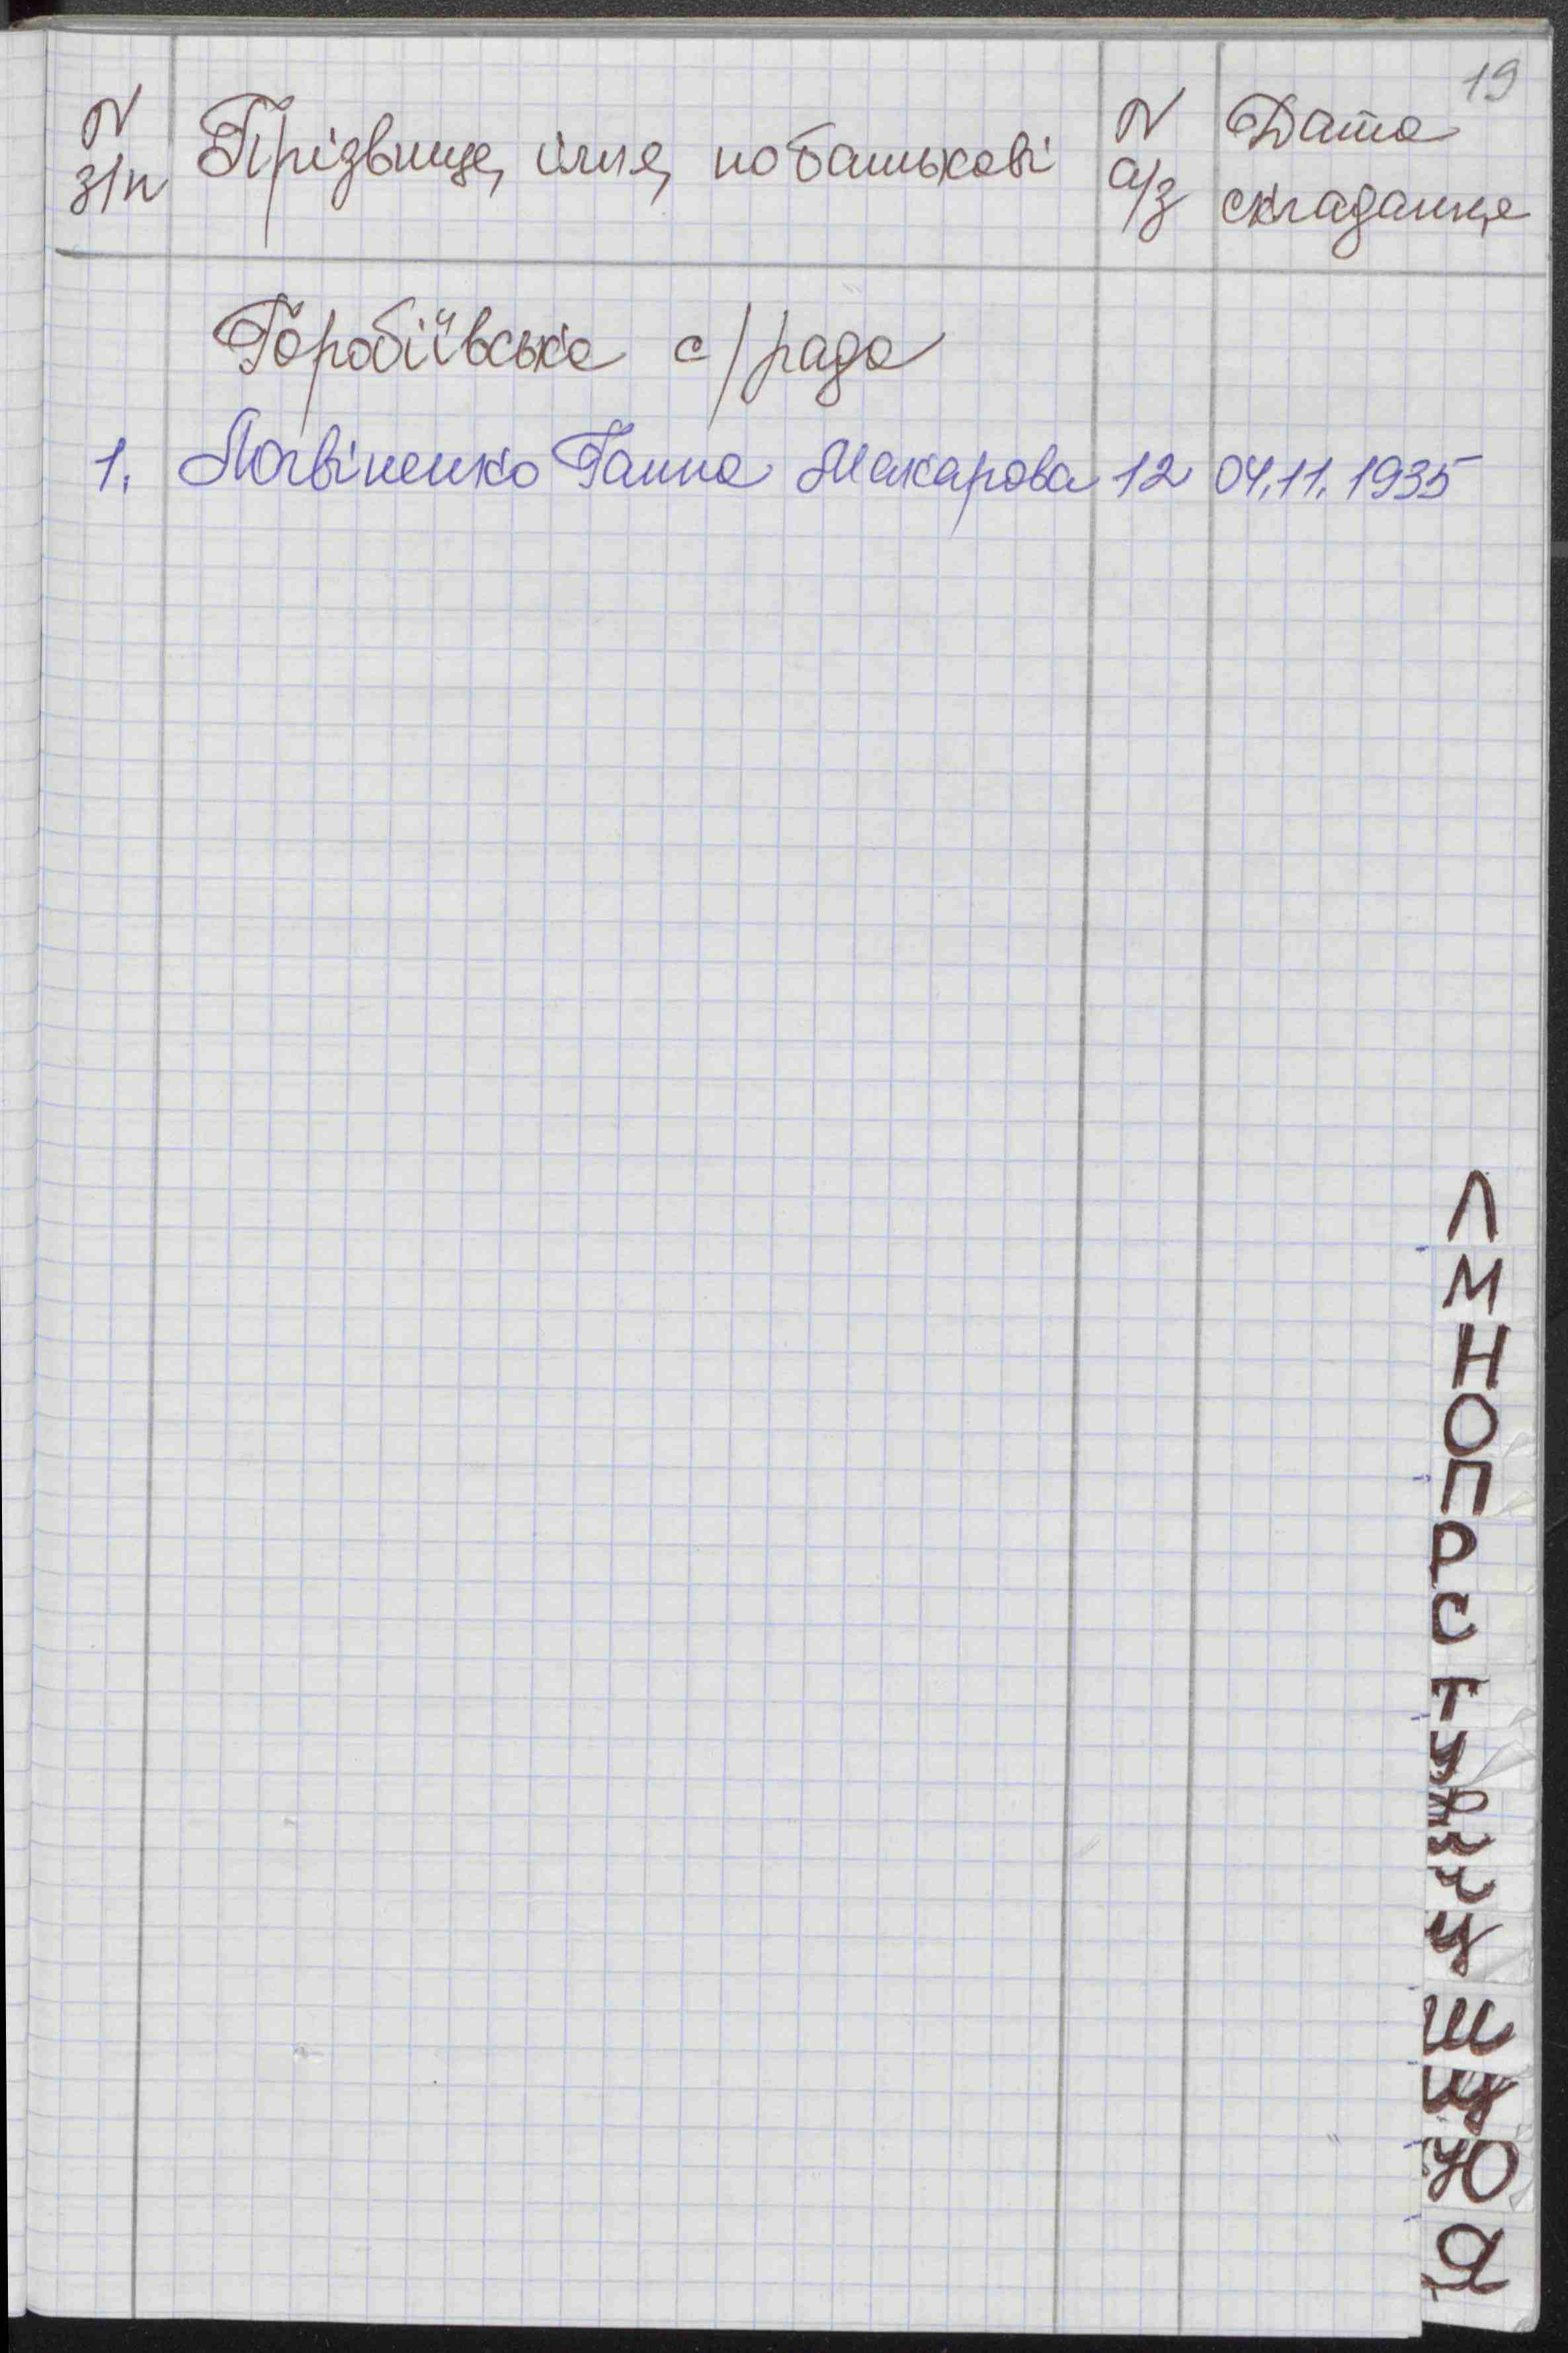 19
N з/п Прізвище, імя, по батькові N а/з Дата складання
Горобіївська с/рада
1. Логвіненко Ганна Макарова 12 04.11.1935
Л
М
Н
О
П
Р
С
Т
У
Ф
Ц
Ш
Щ
Ю
Я